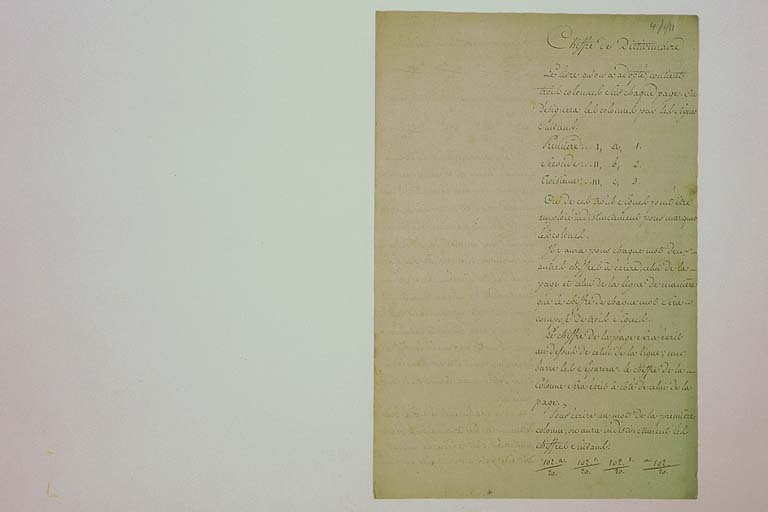 Chiffre de Dictionnaire
Le livre qu'on a adopté, contient
trois colonnes sur chaque page. On
designera les colonnes par les signes
suivans.
Première... I, a, 1.
Seconde... II, b, 2.
troisieme... III, c, 3.
de ces trois signes peut être
emploié indistinctement pour marquer
les colonnes.
Il y aura pour chaque mot deux
autres chiffres à écrire, celui de la
page et celui de la ligne de manière
que le chiffre de chaque mot sera
composé de trois signes.
Le chiffre de la page sera écrit
au dessus de celui de la ligne; une
barre les separera. le chiffre de la
colonne sera écrit à côté de celui de la
page.
Pour écrire un mot de la première
colonne, on aura indistinctement les
chiffres suivans.
102. 102. 102. 102.
20. 20. 20. 20.